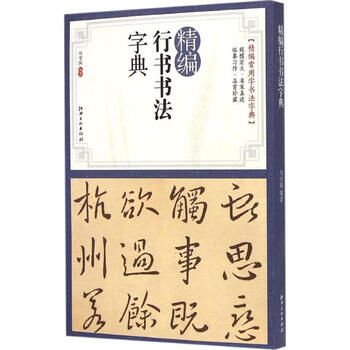 精编
行书书法
字典
【精编常用字书法字典】
规模宏大·名家真迹
临摹习作·品赏珍藏
思恋
觸事既
欲過餘
杭州若
精编行书书法字典
编著